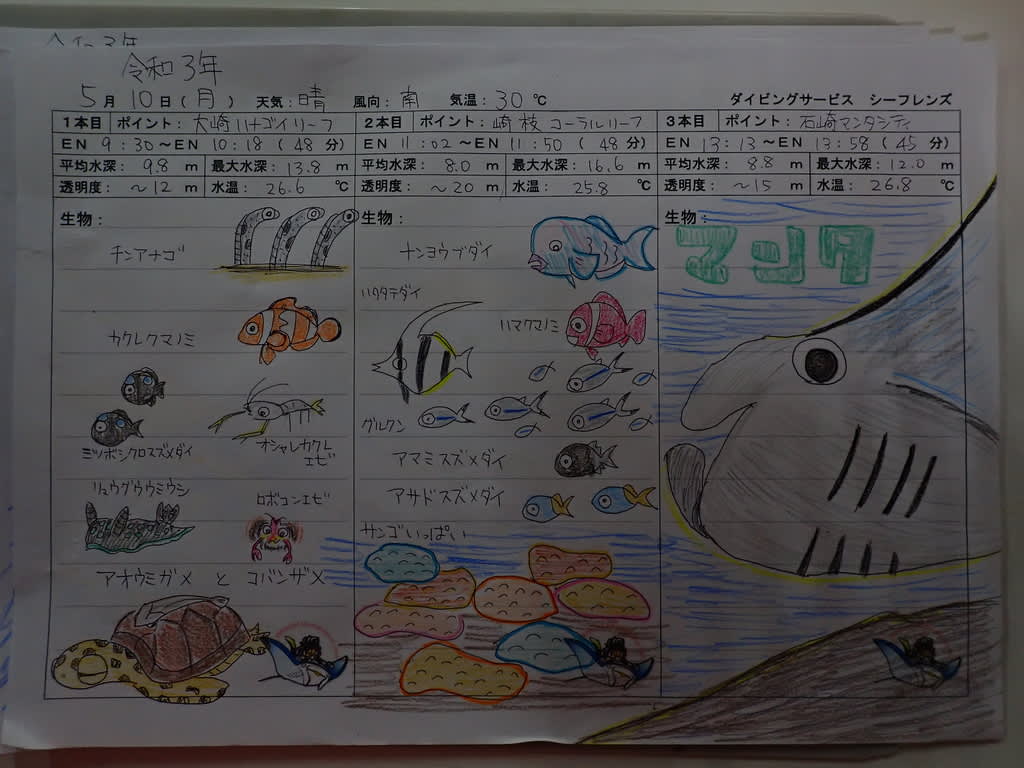 令和3年
5月 10日(月) 天気:晴 風向:南 気温:30℃ ダイビングサービス シーフレンズ
1本目 ポイント:大崎ハナゴイリーフ
EN 9:30~EN 10:18 (48 分)
平均水深: 9.8 m 最大水深: 13.8 m
透明度: ~12 m 水温: 26.6 ℃
生物:
チンアナゴ
カクレクマノミ
ミツボシクロスズメダイ
オシャレカクレエビ
リュウグウウミウシ
ロボコンエビ
アオウミガメ と コバンザメ
2本目 ポイント:崎枝 コーラルリーフ
EN 11:02~EN 11:50 (48 分)
平均水深: 8.0 m 最大水深: 16.6 m
透明度: ~20 m 水温: 25.8 ℃
生物:
ナンヨウブダイ
ハタタテダイ
ハマクマノミ
グルクン
アマミスズメダイ
アサドスズメダイ
サンゴいっぱい
3本目 ポイント:石崎マンタシティ
EN 13:13~EN 13:58 (45 分)
平均水深: 8.8 m 最大水深: 12.0 m
透明度: ~15 m 水温: 26.8 ℃
生物:
マンタ